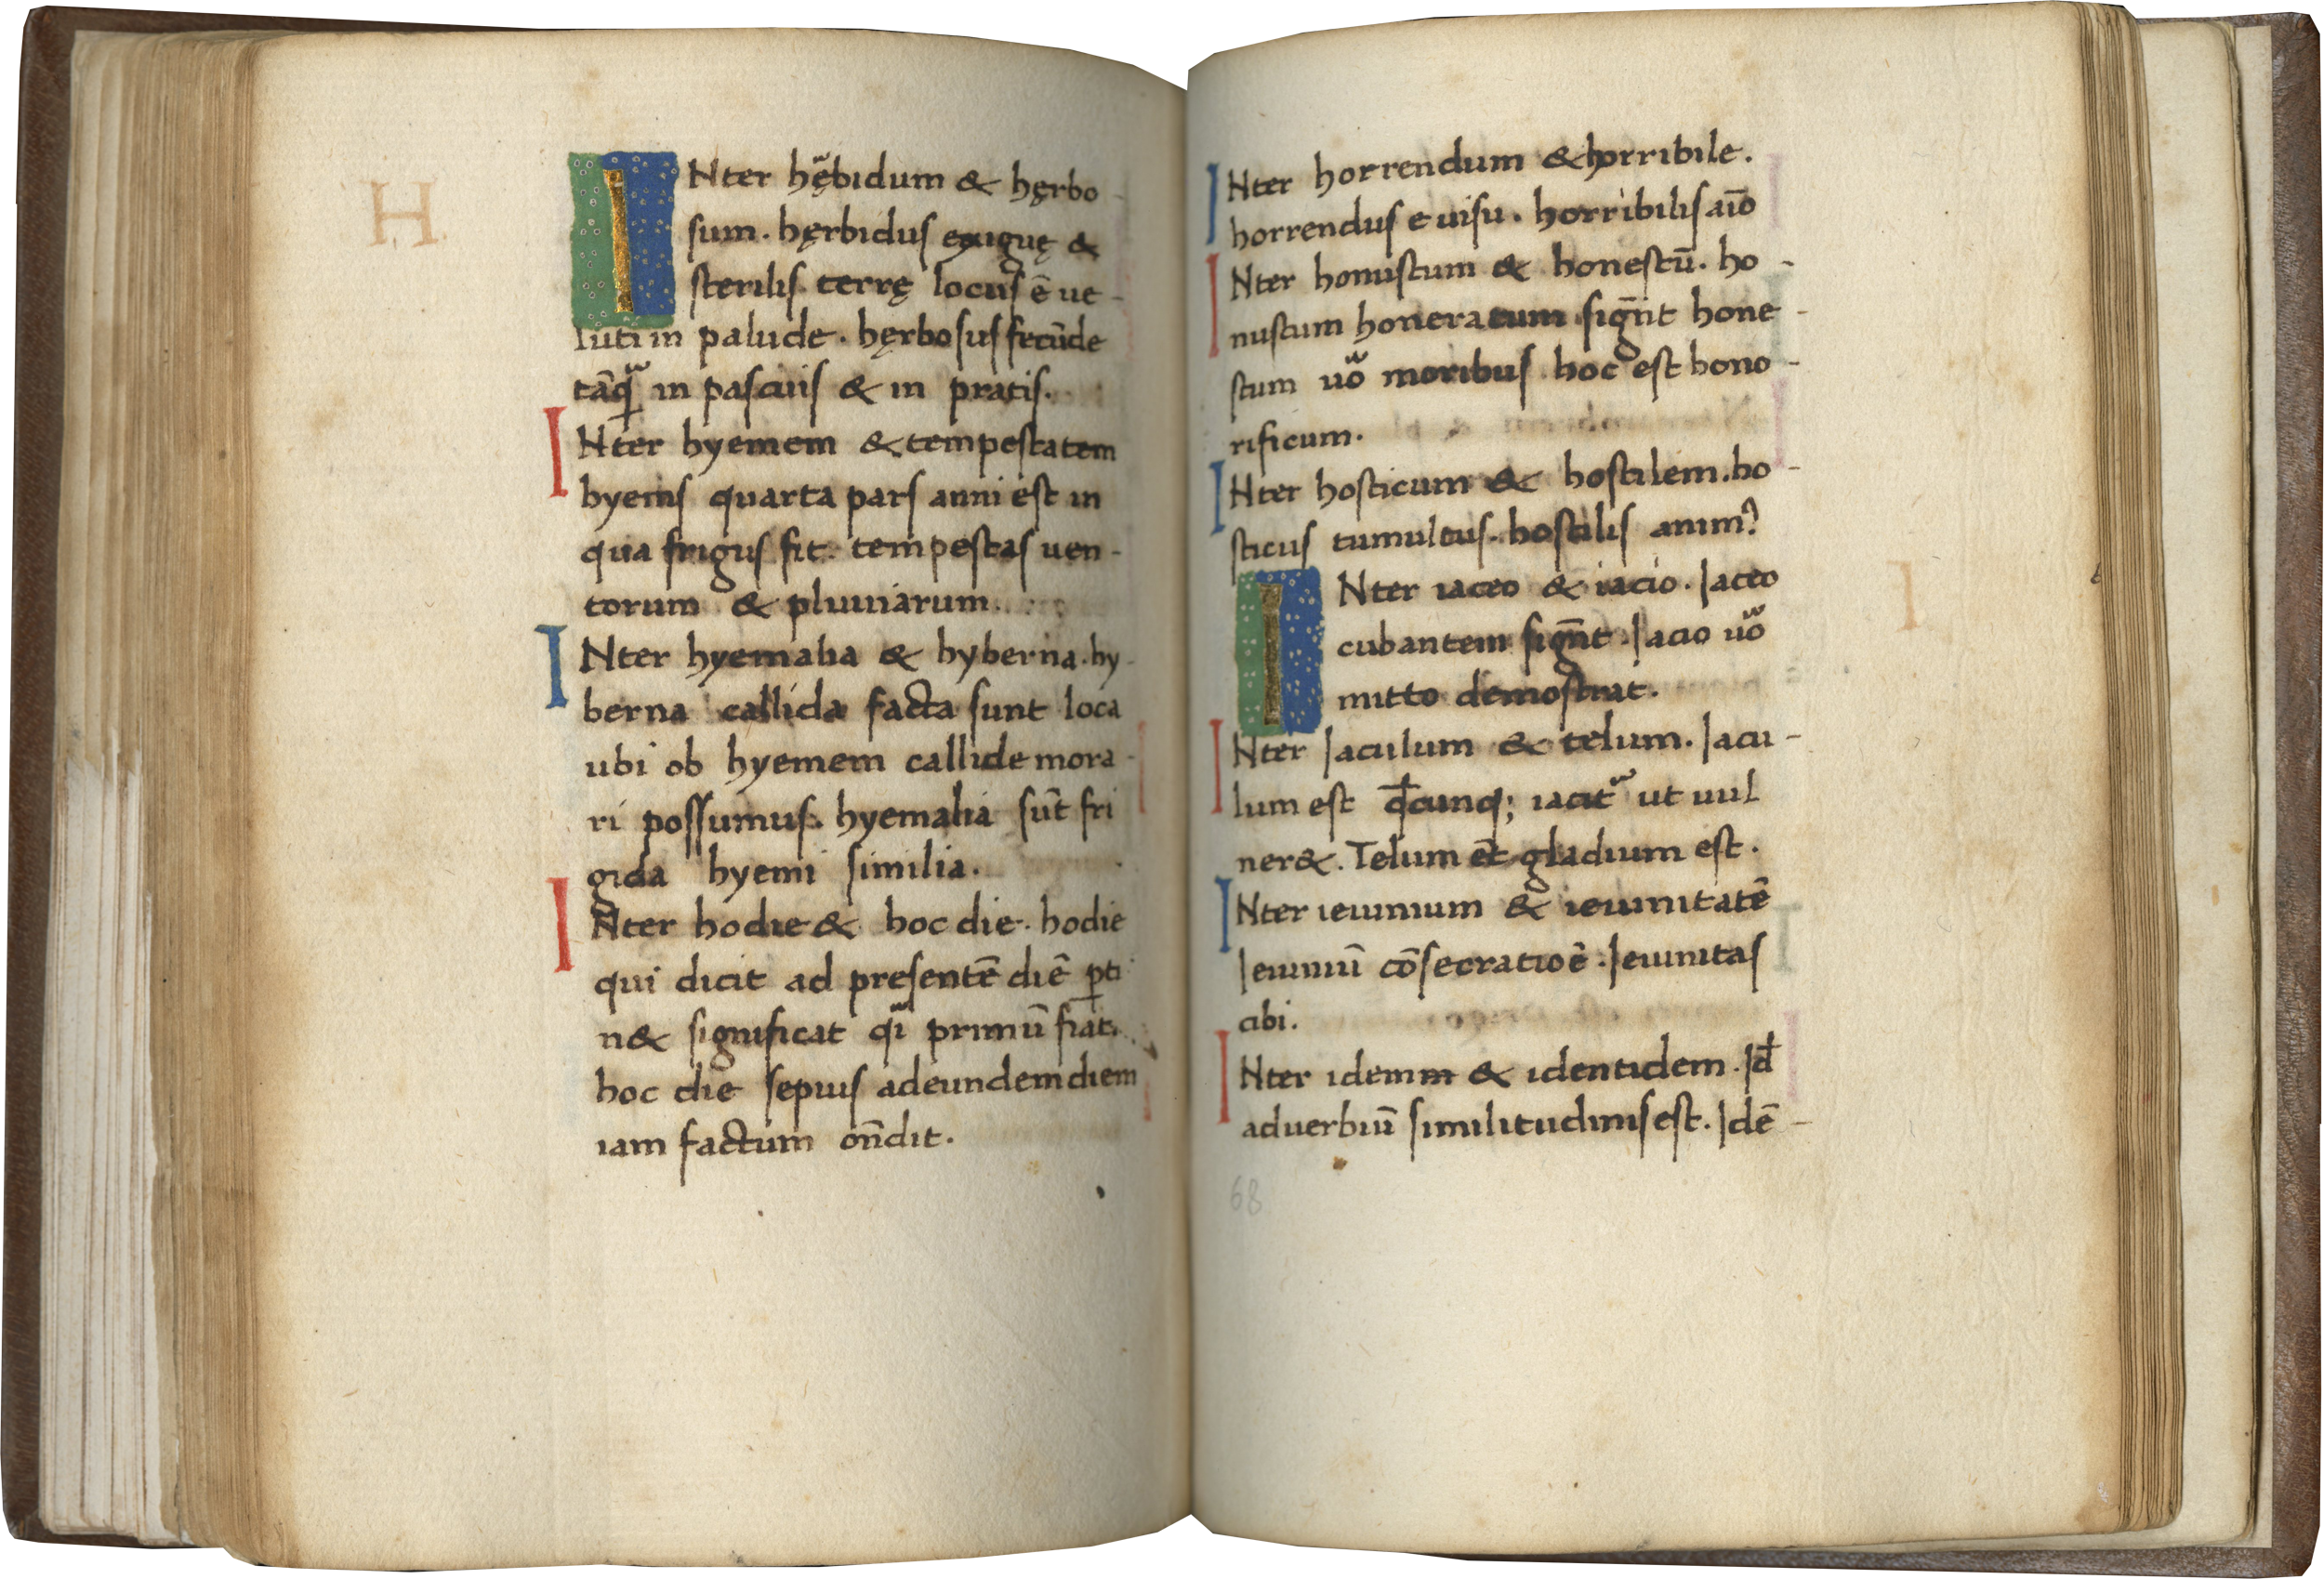 H
INter hębidum & hęrbo-
sum. hęrbidus exiguę &
sterilis terrę locus ē ue-
luti in palude. hęrbosus fecūde
tāq̄ in pascuis & in pratis.
INter hyemem & tempestatem
hyems quarta pars anni est in
qua frigus fit. tempestas uen-
torum & pluuiarum.
INter hyemalia & hyberna. hy-
berna callida facta sunt loca
ubi ob hyemem callide mora-
ri possumus. hyemalia sūt fri
gida hyemi similia.
INter hodie & hoc die. hodie
qui dicit ad presentē diē ꝑti
n& significat qi primū fiat.
hoc die sepius ad eundem diem
iam factum on̄dit.
INter horrendum & horribile.
horrendus e uisu. horribilis aīo
INter honustum & honestū. ho-
nustum honeratum sign̄t hone-
stum uo moribus hoc est hono-
rificum.
INter hosticum & hostilem. ho-
sticus tumultus. hostilis anim?
I
INter iaceo & iacio. Iaceo
cubantem sign̄t. Iacio uo
mitto demostrat.
INter Iaculum & telum. Iacu-
lum est qđcunq; iacit ut uul
ner&. Telum et gladium est.
INter ieiunium & ieiunitatē
Ieiuniū cōsecratioē. Ieiunitas
cibi.
INter idemm & identidem. Id
aduerbiū similitudinis est. Idē-
68